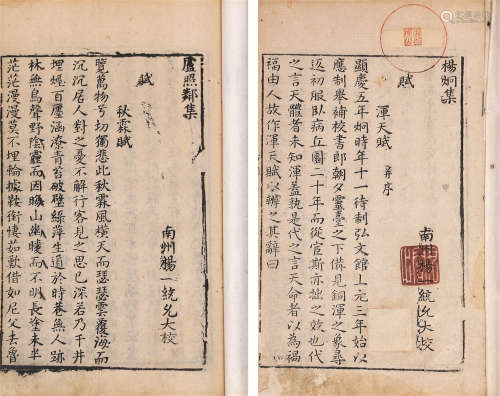 楊炯集
南州楊一統允大校
賦
渾天賦 并序
顯慶五年炯時年十一待制弘文館上元三年始以
應制舉補校書郎朝夕靈臺之下備見銅渾之象尋
返初服臥病丘園二十年而從宦斯亦拙之效也代
之言天體者未知渾蓋孰是代之言天命者以為禍
福由人故作渾天賦以辯之其辭曰
盧照鄰集
南州楊一統允大校
賦
秋霖賦
覽萬物兮竊獨悲此秋霖風橫天而瑟瑟雲覆海而
沉沉居人對之憂不解行客見之思已深若乃千井
埋煙百廛涵潦青苔破壁綠萍生道於時巷無人跡
林無鳥聲野陰霾而因晦山幽曖而不明長塗未半
茫茫漫漫莫不埋輪據鞍銜悽茹歎借如尼父去魯